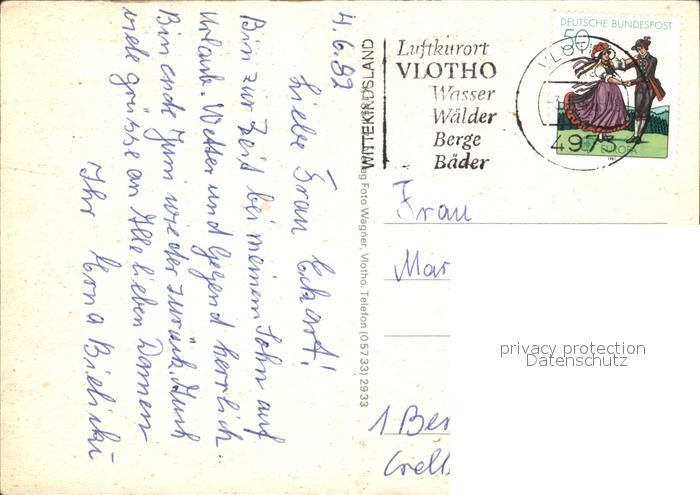 4.6.82
Liebe Frau Eckart!
Bin zur Zeit bei meinem Sohn auf
Urlaub. Wetter und Gegend herrlich.
Bin ende Juni wieder zurück. Auch
viele grüsse an Alle lieben Damen
Ihr Mona Bielicki
WITTEKINDSLAND
Foto Wagner, Vlotho. Telefon (05733) 2933
Luftkurort
VLOTHO
Wasser
Wälder
Berge
Bäder
DEUTSCHE BUNDESPOST
50
EUROPA
VLOTHO
497
Frau
Mar
1 Ber
Crelb
privacy protection
Datenschutz